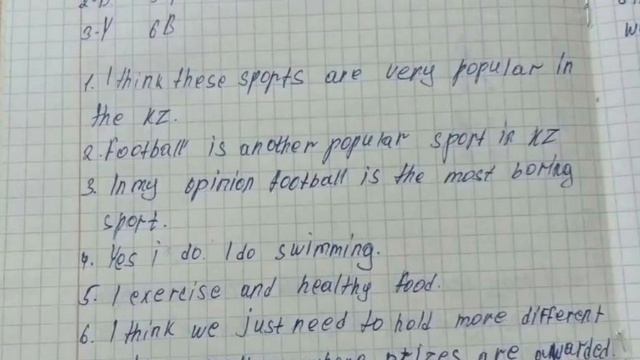 3-Y 6B
1. I think these sports are very popular in
the KZ.
2. Football is another popular sport in KZ
3. In my opinion football is the most boring
sport.
4. Yes i do. I do swimming.
5. I exercise and healthy food.
6. I think we just need to hold more different
prizes are awarded.